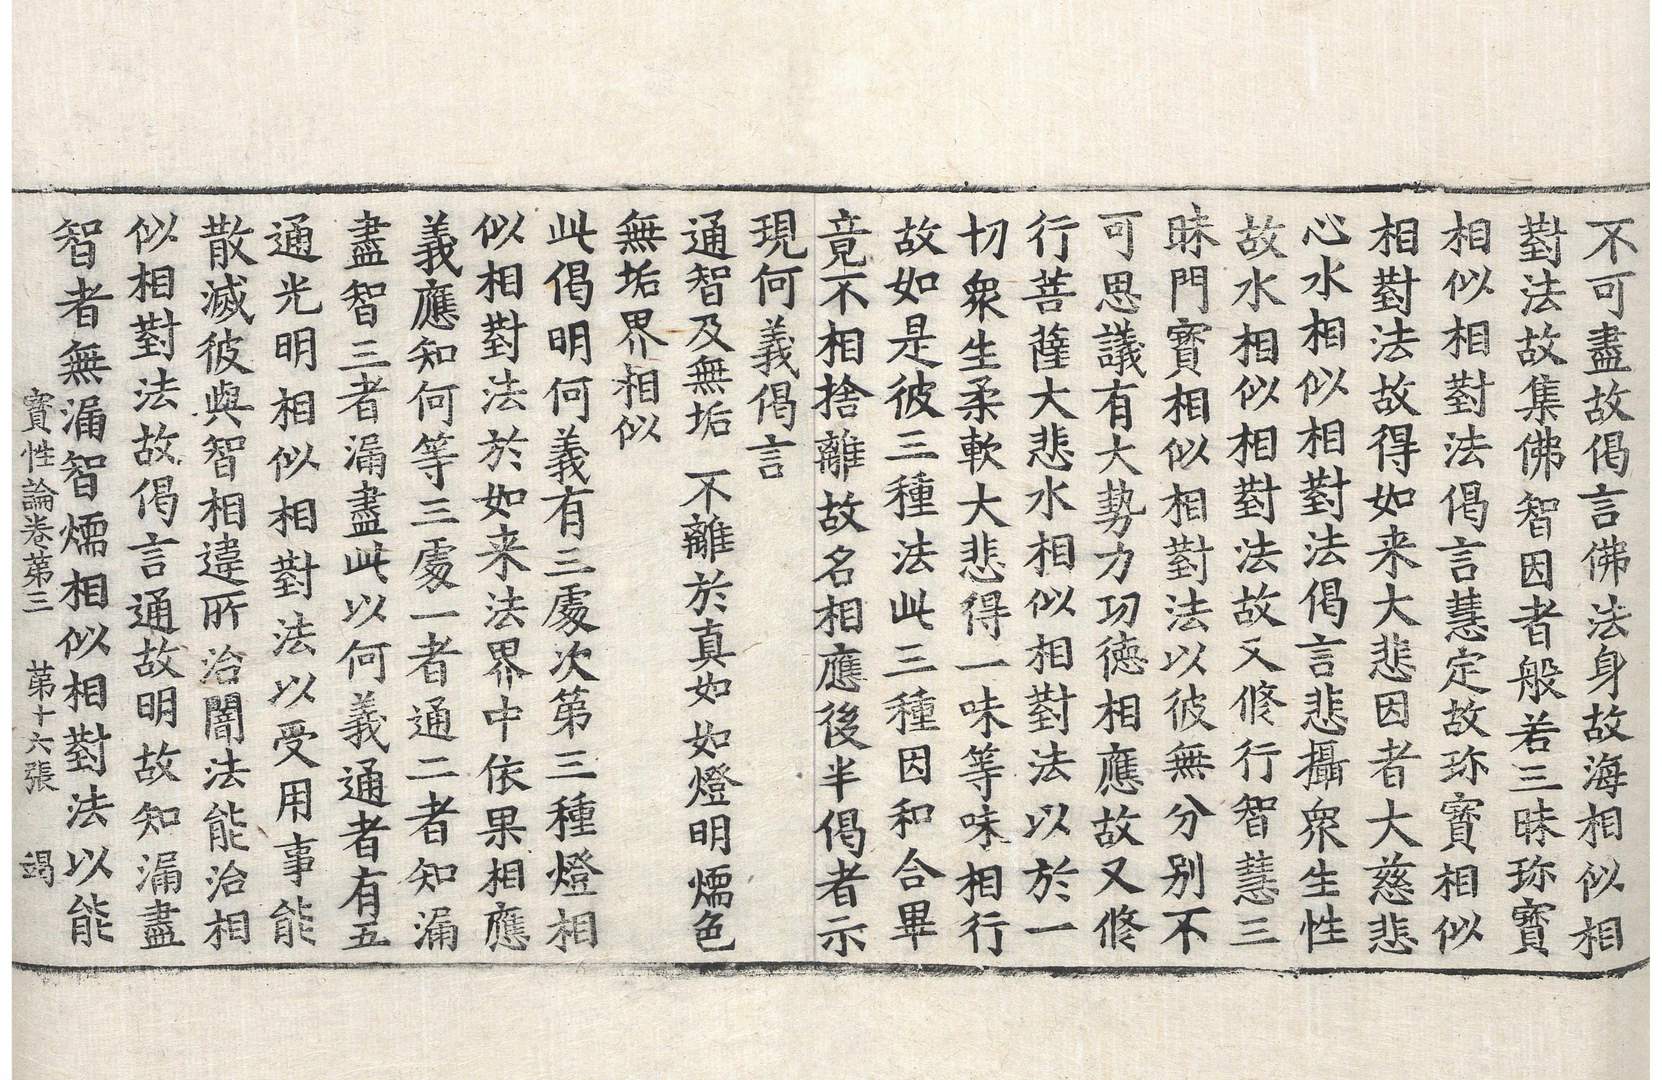 不可盡故偈言佛法身故海相似相
對法故集佛智因者般若三昧珎寳
相似相對法偈言慧定故珎寳相似
相對法故得如来大悲因者大慈悲
心水相似相對法偈言悲攝衆生性
故水相似相對法故又修行智慧三
昧門寳相似相對法以彼無分别不
可思議有大勢力功徳相應故又修
行菩薩大悲水相似相對法以於一
切衆生柔軟大悲得一味等味相行
故如是彼三種法此三種因和合畢
竟不相捨離故名相應後半偈者示
現何義偈言
通智及無垢 不離於真如 如燈明㷒色
無垢界相似
此偈明何義有三處次第三種燈相
似相對法於如来法界中依果相應
義應知何等三處一者通二者知漏
盡智三者漏盡此以何義通者有五
通光明相似相對法以受用事能
散滅彼與智相違所治闇法能治相
似相對法故偈言通故明故知漏盡
智者無漏智㷒相似相對法以能
寳性論卷第三 第十六張 竭